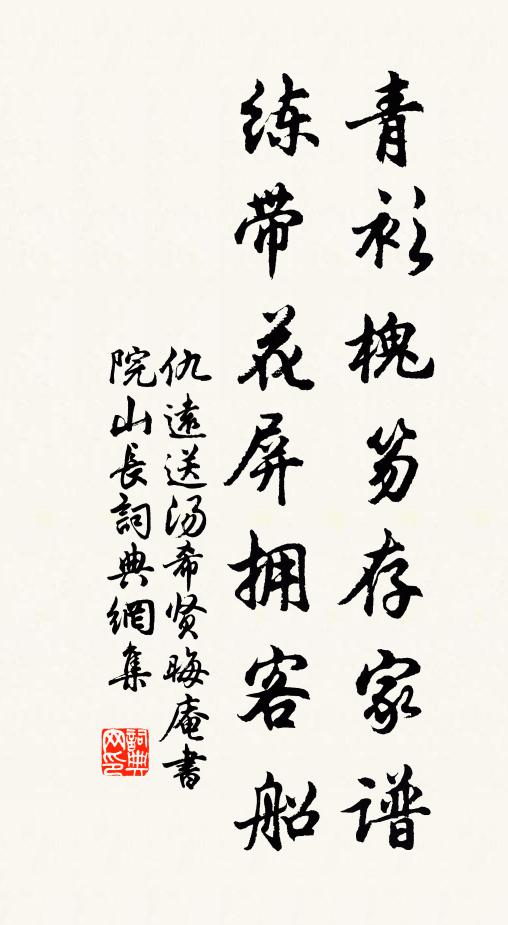 青衫槐笏存家谱
练带花屏拥客船
仇遠送汤希贤晦庵書
院山長詞典網集
詞典网印